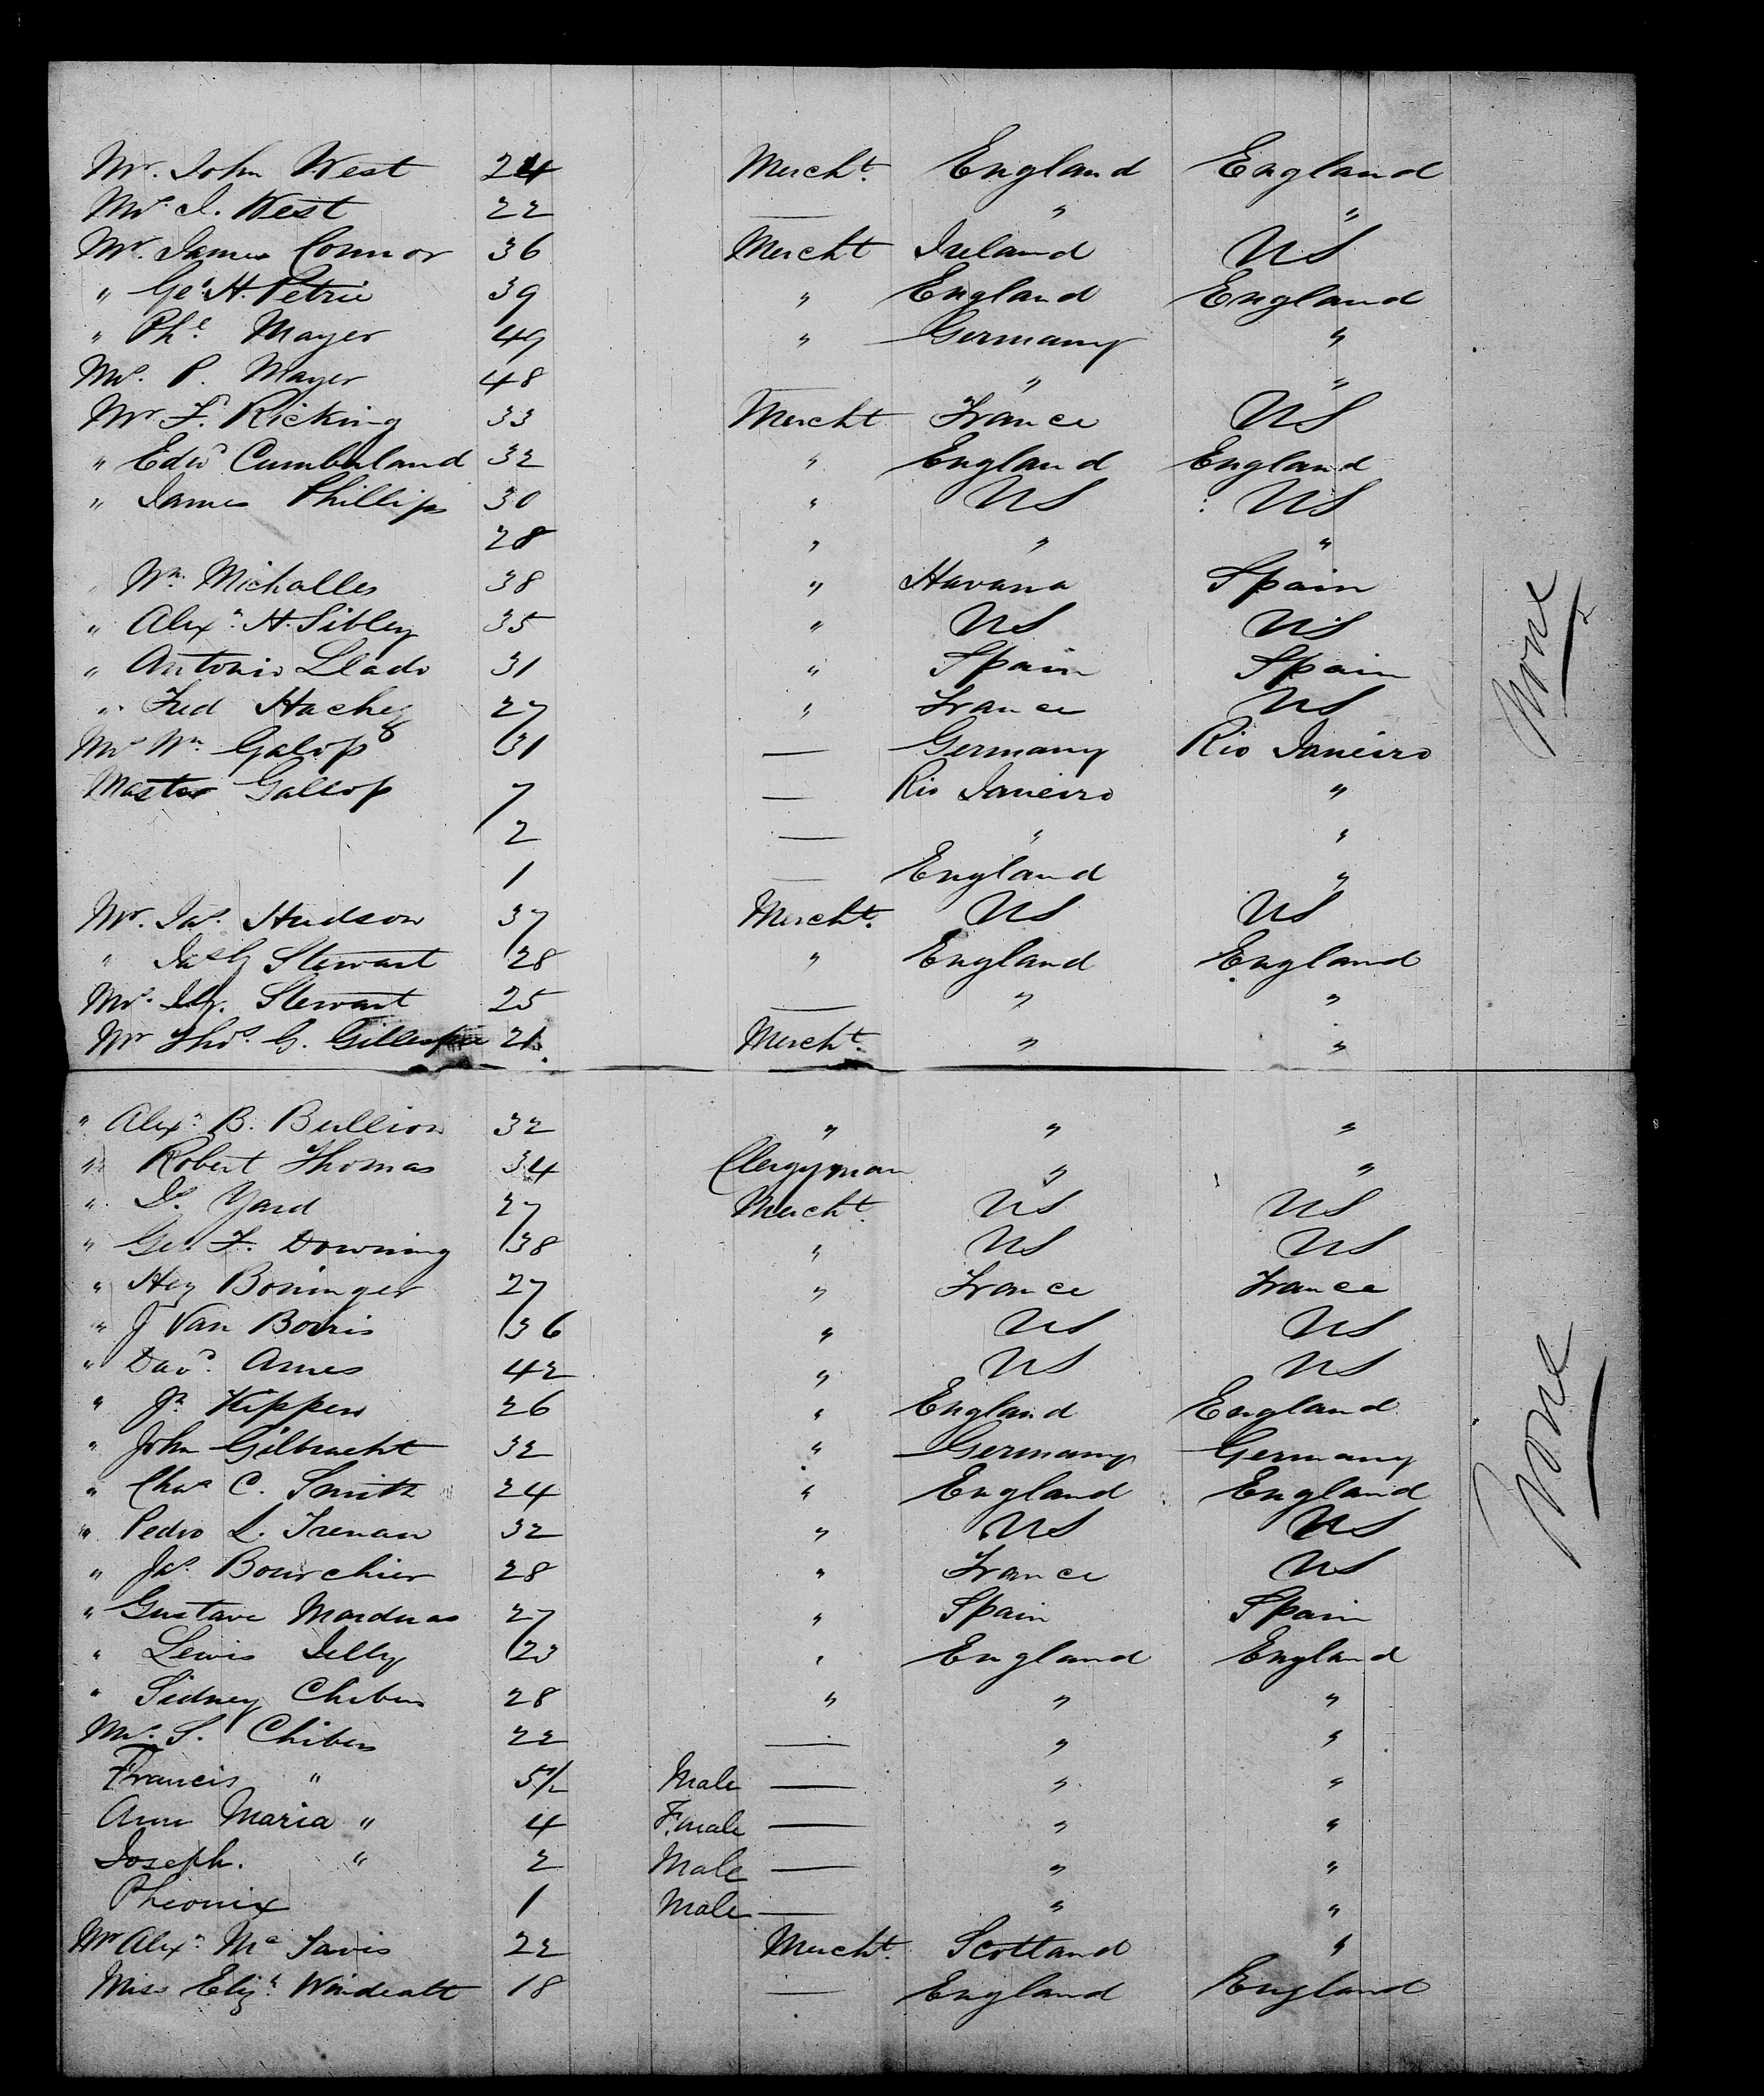 Mr. John West 24 Mercht. England England
Mrs. J. West 22 — " "
Mr. James Connor 36 Mercht Ireland US
" Geo. H. Petrie 39 " England England
" Phe. Mayer 49 " Germany "
Mrs. P. Mayer 48 — " "
Mr. F. Ricking 33 Mercht France US
" Edwd Cumberland 32 " England England
" James Phillips 30 " US US
28 " " "
" Wm. Michalles 38 " Havana Spain
" Alexr. H. Sibley 35 " US US
" Antonio Llado 31 " Spain Spain
" Fred Hachez 27 " France US
Mrs Wm. Galop 31 — Germany Rio Janeiro
Master Gallop 7 — Rio Janeiro "
2 — " "
1 — England "
Mr. Jas. Hudson 37 Mercht. US US
" Jas G Stewart 28 " England England
Mrs. Stewart 25 — " "
Mr Thos. G. Gillespie 21 Mercht. " "
" Alexr. B. Bullion 32 " " "
" Robert Thomas 34 Clergyman " "
" Yard 27 Mercht. US US
" Geo. F. Downing 38 " US US
" Hey Boninger 27 " France France
" J Van Borris 36 " US US
" Davd. Ames 42 " US US
" Jn Kippen 26 " England England
" John Gilbracht 32 " Germany Germany
" Chas C. Smith 24 " England England
" Pedro L. Trenan 32 " US US
" Jas. Bourchier 28 " France US
" Gustave Marduas 27 " Spain Spain
" Lewis Jelly 23 " England England
" Sidney Chibers 28 " " "
Mrs. S. Chibers 22 — " "
Francis " 5 1/2 Male — " "
Ann Maria " 4 Female — " "
Joseph. " 2 Male — " "
Pheonix 1 Male — " "
Mr Alexr. Mc Tavis 22 Mercht. Scotland "
Miss Eliza. Windeatt 18 — England England
None
None